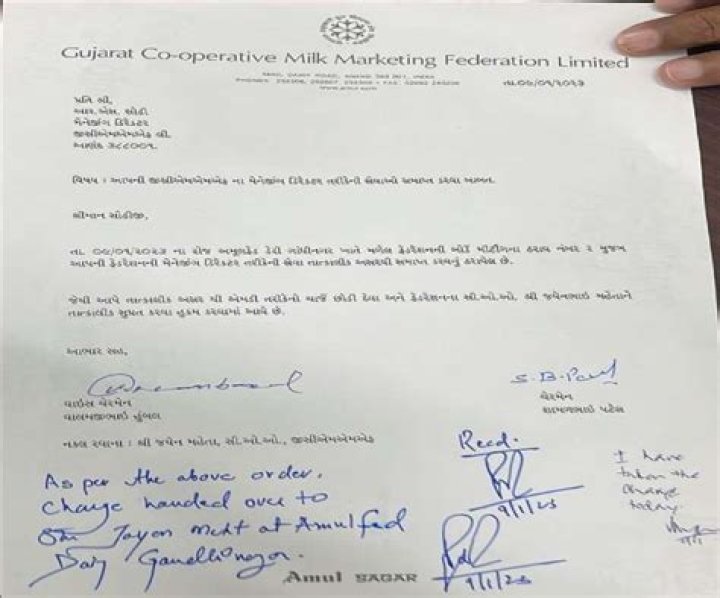 Gujarat Co-operative Milk Marketing Federation Limited
AMUL DAIRY ROAD, ANAND 388 001, INDIA
www.amul.com
પ્રતિ શ્રી,
આર.એસ. સોઢી
મેનેજીંગ ડિરેક્ટર
જીસીએમએમએફ લી.
આણંદ ૩૮૮૦૦૧.
વિષય : આપની જીસીએમએમએફ ના મેનેજીંગ ડિરેક્ટર તરીકેની સેવાઓ સમાપ્ત કરવા બાબત.
શ્રીમાન સોઢીજી,
તા. ૦૯/૦૧/૨૦૨૩ ના રોજ અમુલફેડ ડેરી ગાંધીનગર ખાતે મળેલ ફેડરેશનની બોર્ડ મીટીંગના ઠરાવ નંબર ૨ મુજબ
આપની ફેડરેશનની મેનેજીંગ ડિરેક્ટર તરીકેની સેવા તાત્કાલીક અસરથી સમાપ્ત કરવાનું ઠરાવેલ છે.
જેથી આપે તાત્કાલીક અસર થી એમડી તરીકેનો ચાર્જ છોડી દેવા અને ફેડરેશનના સી.ઓ.ઓ. શ્રી જયેનભાઇ મહેતાને
તાત્કાલીક સુપ્રત કરવા હુકમ કરવામાં આવે છે.
આભાર સહ,
S.B. Patel
વાઇસ ચેરમેન
ચેરમેન
વાલમજીભાઇ હુંબલ
શામળભાઇ પટેલ
નકલ રવાના : શ્રી જયેન મહેતા, સી.ઓ.ઓ., જીસીએમએમએફ
Recd.
9/1/23
I have
taken the
charge
today
As per the above order,
Charge handed over to
Shri Jayen Meht at Amulfed
Dairy Gandhinagar.
9/1/23
Amul SAGAR